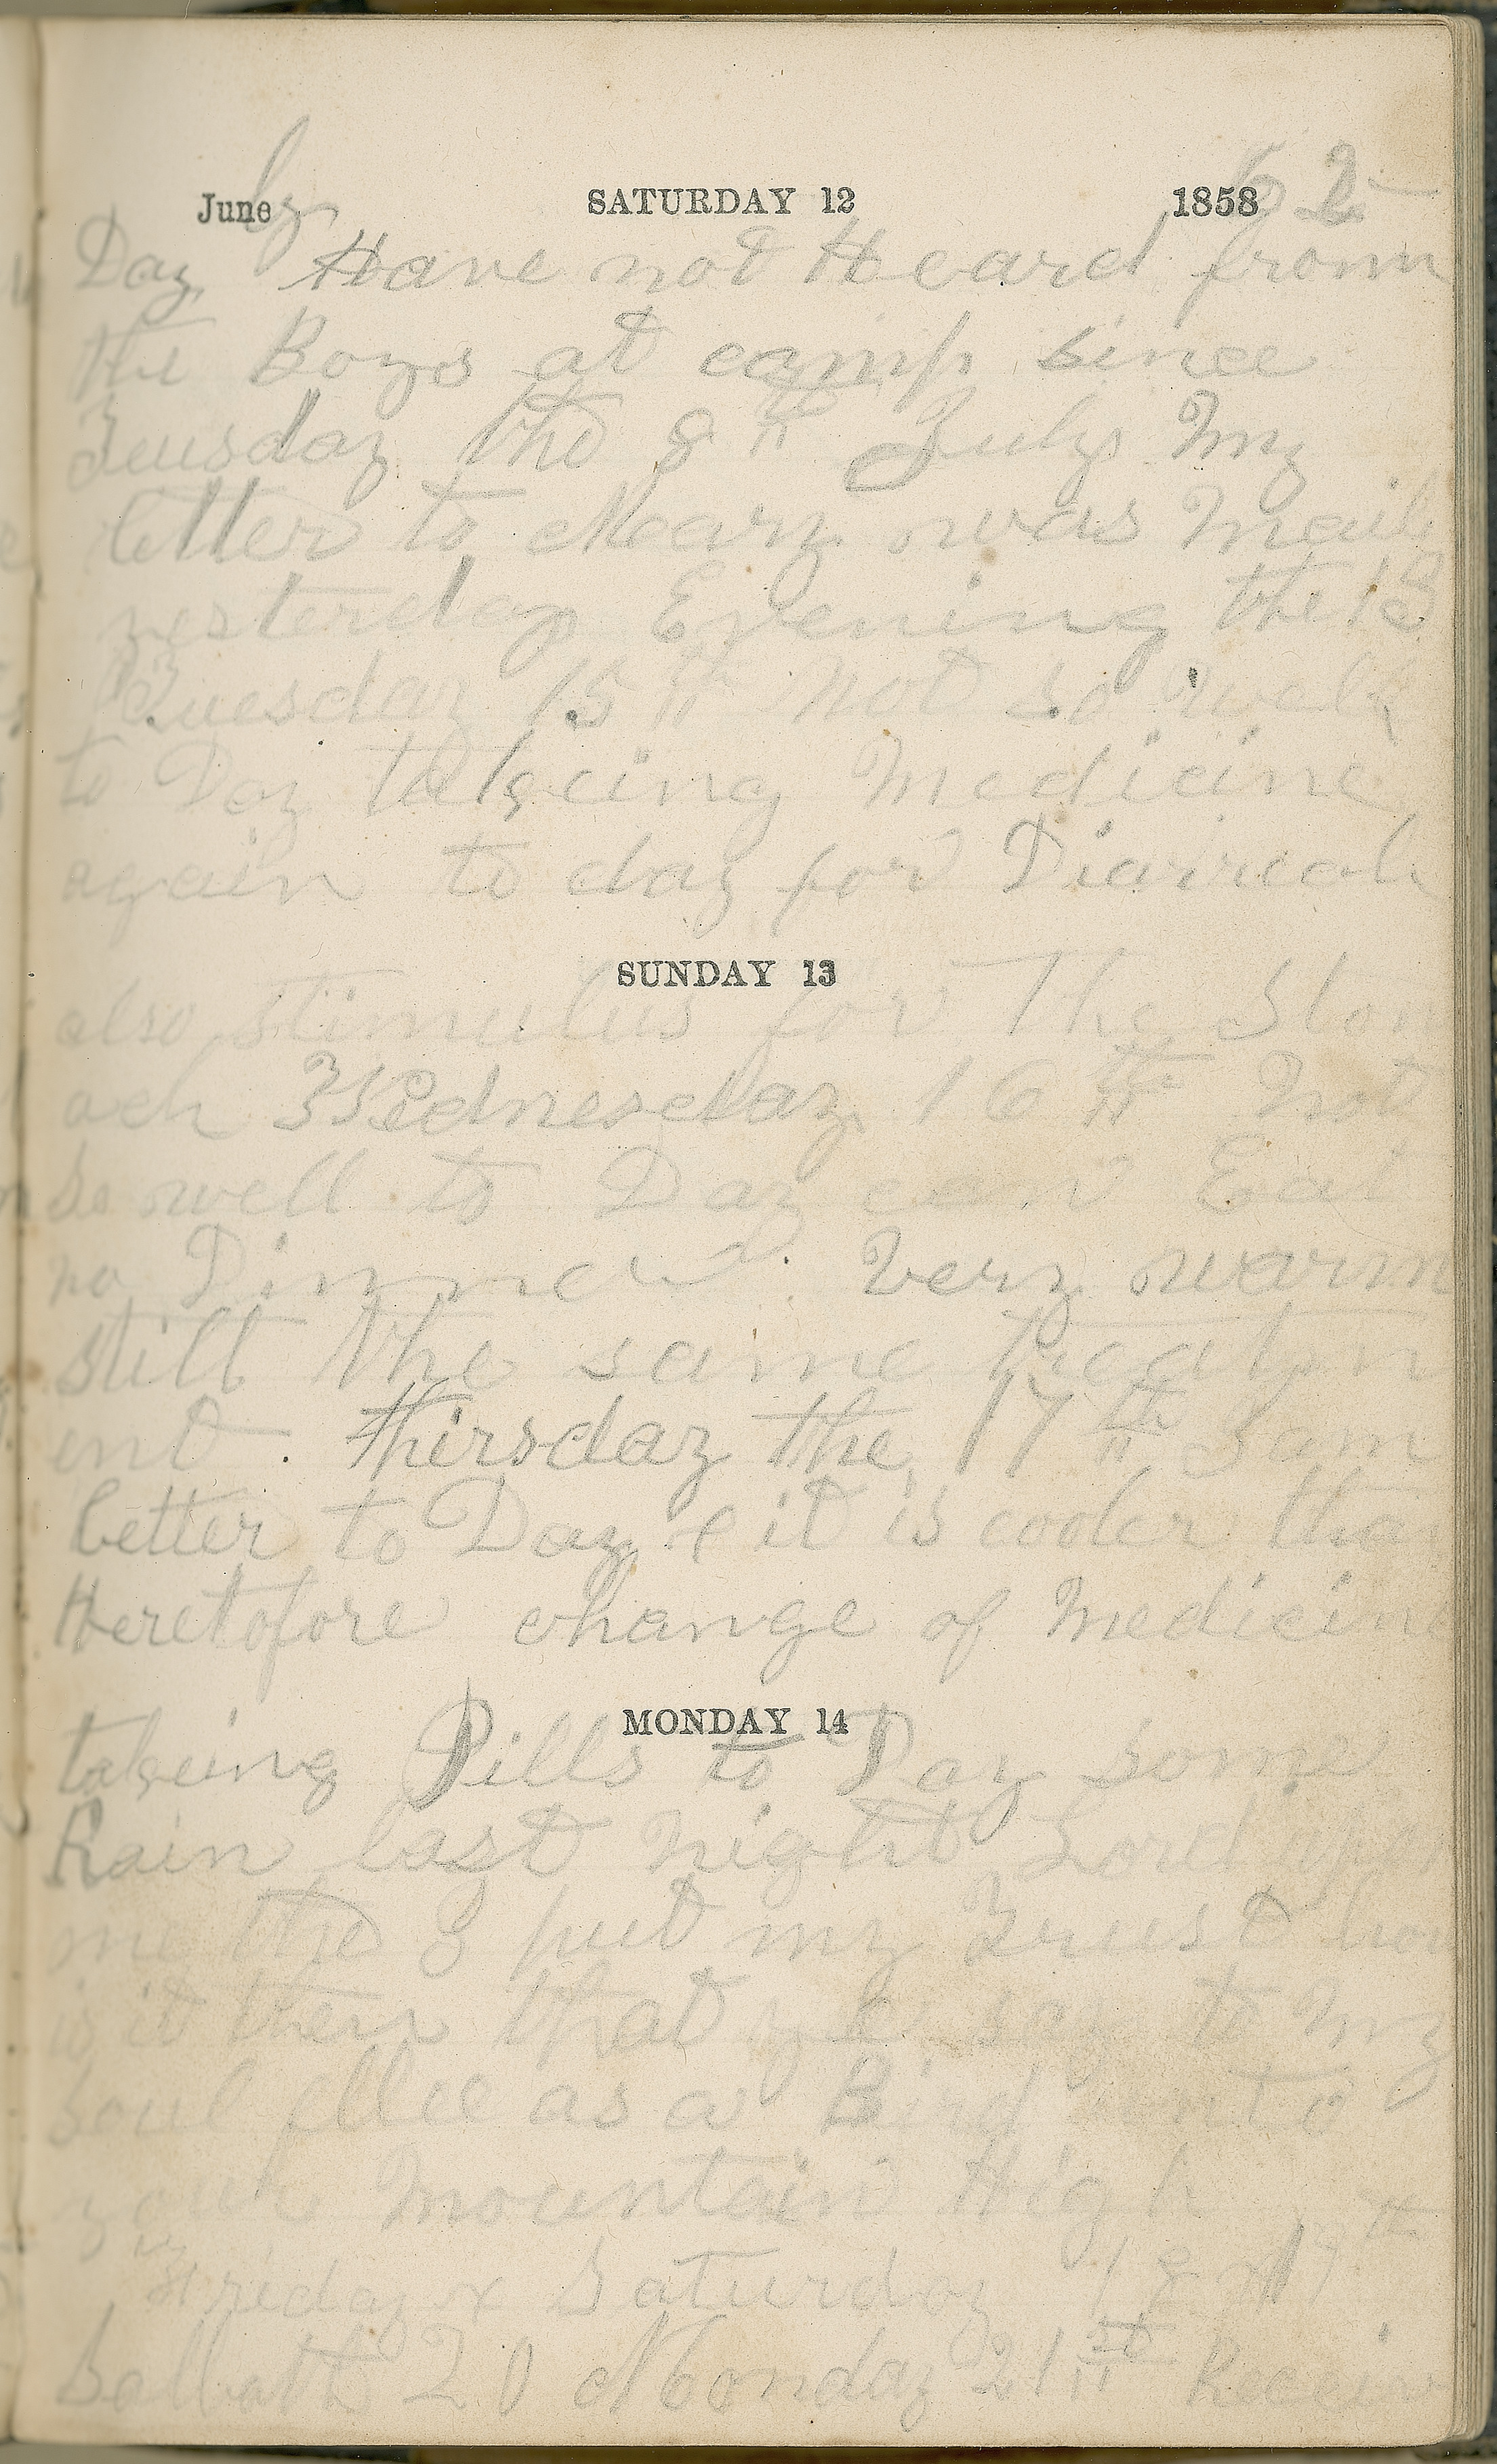 June ly SATURDAY 12 1858 62
Day Have not Heard from
the Boys at camp since
Teusday the 8th July My
letter to Mary was mail
yesterday Evening the 13
Tuesday 15th Not so well
to Day takeing Medicine
again to day for Diarreah
SUNDAY 13
also stimulus for The Stom
ach Wednesday 16th Not
so well to Day Eat
no Dinner Very warm
still the same treatm
ent. Thirsday the 17th I am
better to Day & it is cooler than
Heretofore change of Medicine
MONDAY 14
takeing Pills to Day some
Rain last Night Lord
the I put my Trust how
is it then that say to My
soul flie as a Bird unto
your Mountain High
Friday & Saturday 18 & 19
Sabbath 20 Monday 21st Receiv